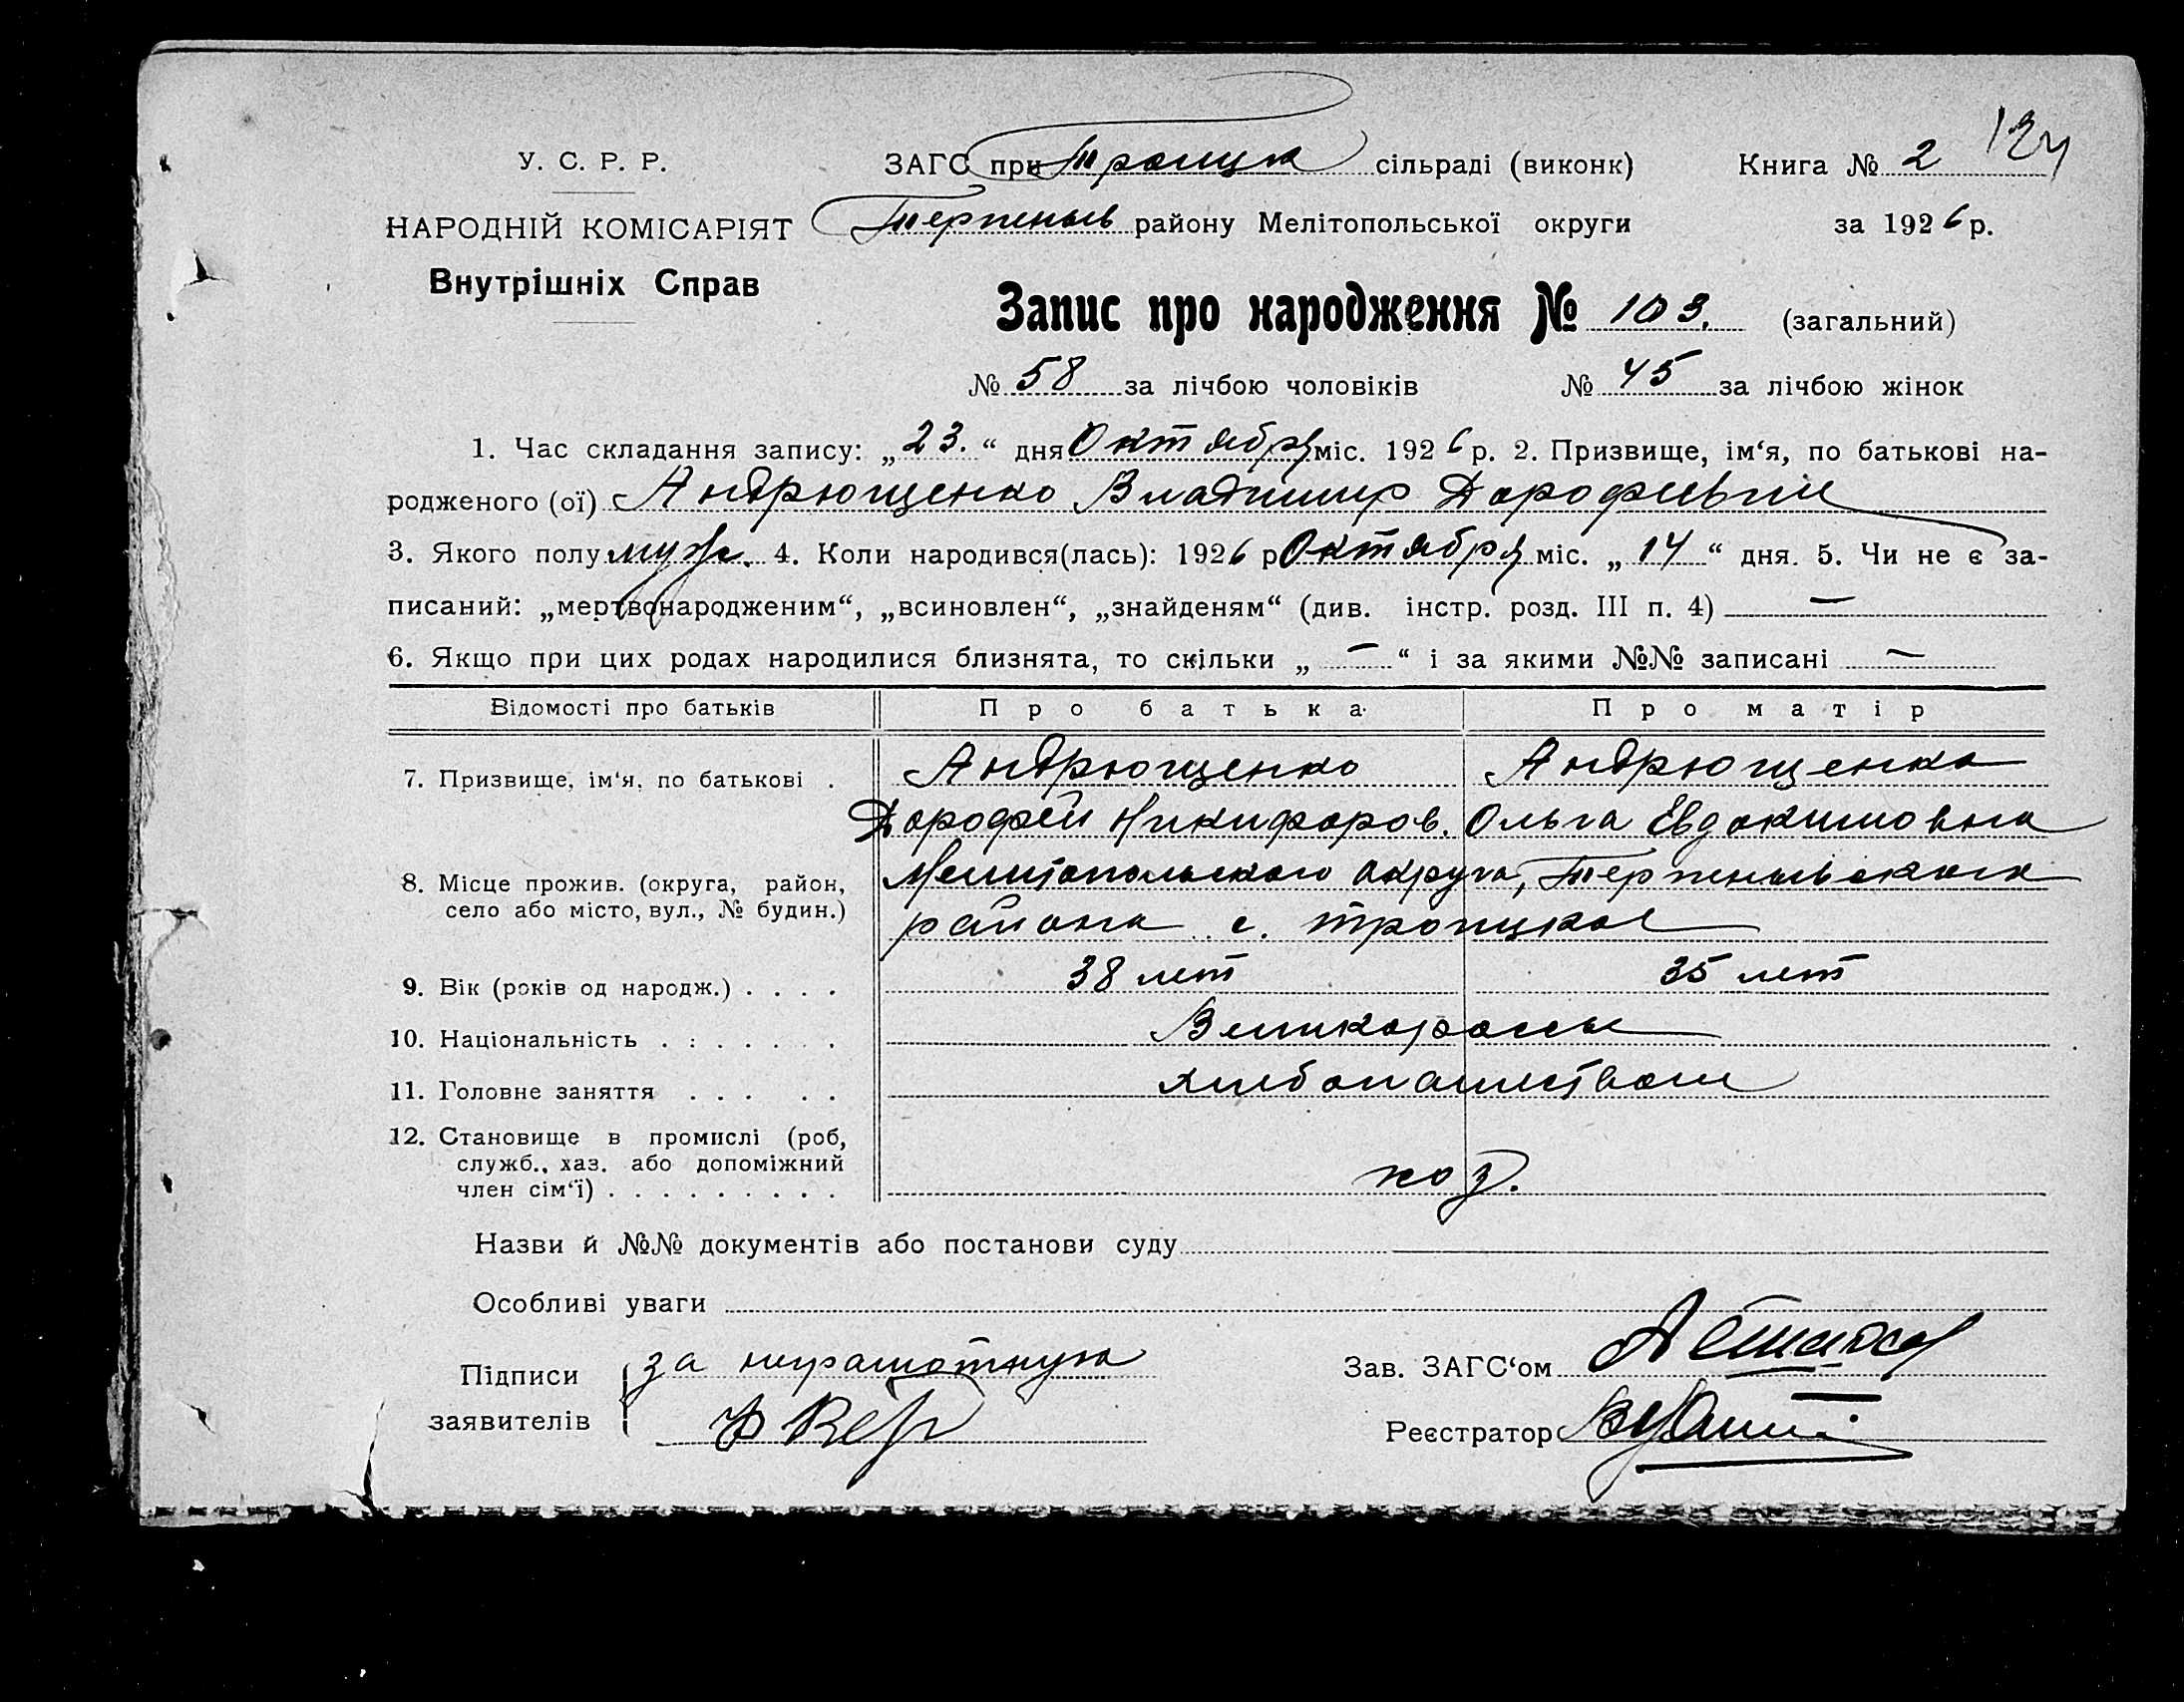 124
У. С. Р. Р. ЗАГС при Троицк сільраді (виконк) Книга № 2
НАРОДНІЙ КОМІСАРІЯТ Терпеньев району Мелітопольської округи за 1926 р.
Внутрішніх Справ
Запис про народження № 103. (загальний)
№ 58 за лічбою чоловіків № 45 за лічбою жінок
1. Час складання запису: „23.“ дня Октября міс. 1926 р. 2. Призвище, ім‘я, по батькові на-
родженого (ої) Андрющенко Владимир Дорофеевич
3. Якого полу муж. 4. Коли народився(лась): 1926 р Октября міс. „14“ дня. 5. Чи не є за-
писаний: „мертвонародженим“, „всиновлен“, „знайденям“ (див. інстр. розд. III п. 4) —
6. Якщо при цих родах народилися близнята, то скільки „—“ і за якими №№ записані —
Відомості про батьків Про батька Про матір
7. Призвище, ім‘я, по батькові . Андрющенко Андрющенко
Дорофей Никифоров. Ольга Евдокимовна
8. Місце прожив. (округа, район, Мелитопольского округа, Терпеньевского
село або місто, вул., № будин.) района с. Троицкое
9. Вік (років од народж.) . . . . 38 лет 35 лет
10. Національність . : . . . . . Великороссы
11. Головне заняття . . . . . хлебопашеством
12. Становище в промислі (роб,
служб., хаз. або допоміжний
член сім‘ї) . . . . . . . . . хоз.
Назви й №№ документів або постанови суду
Особливі уваги
Підписи за неграмотную Зав. ЗАГС‘ом
заявителів Реєстратор